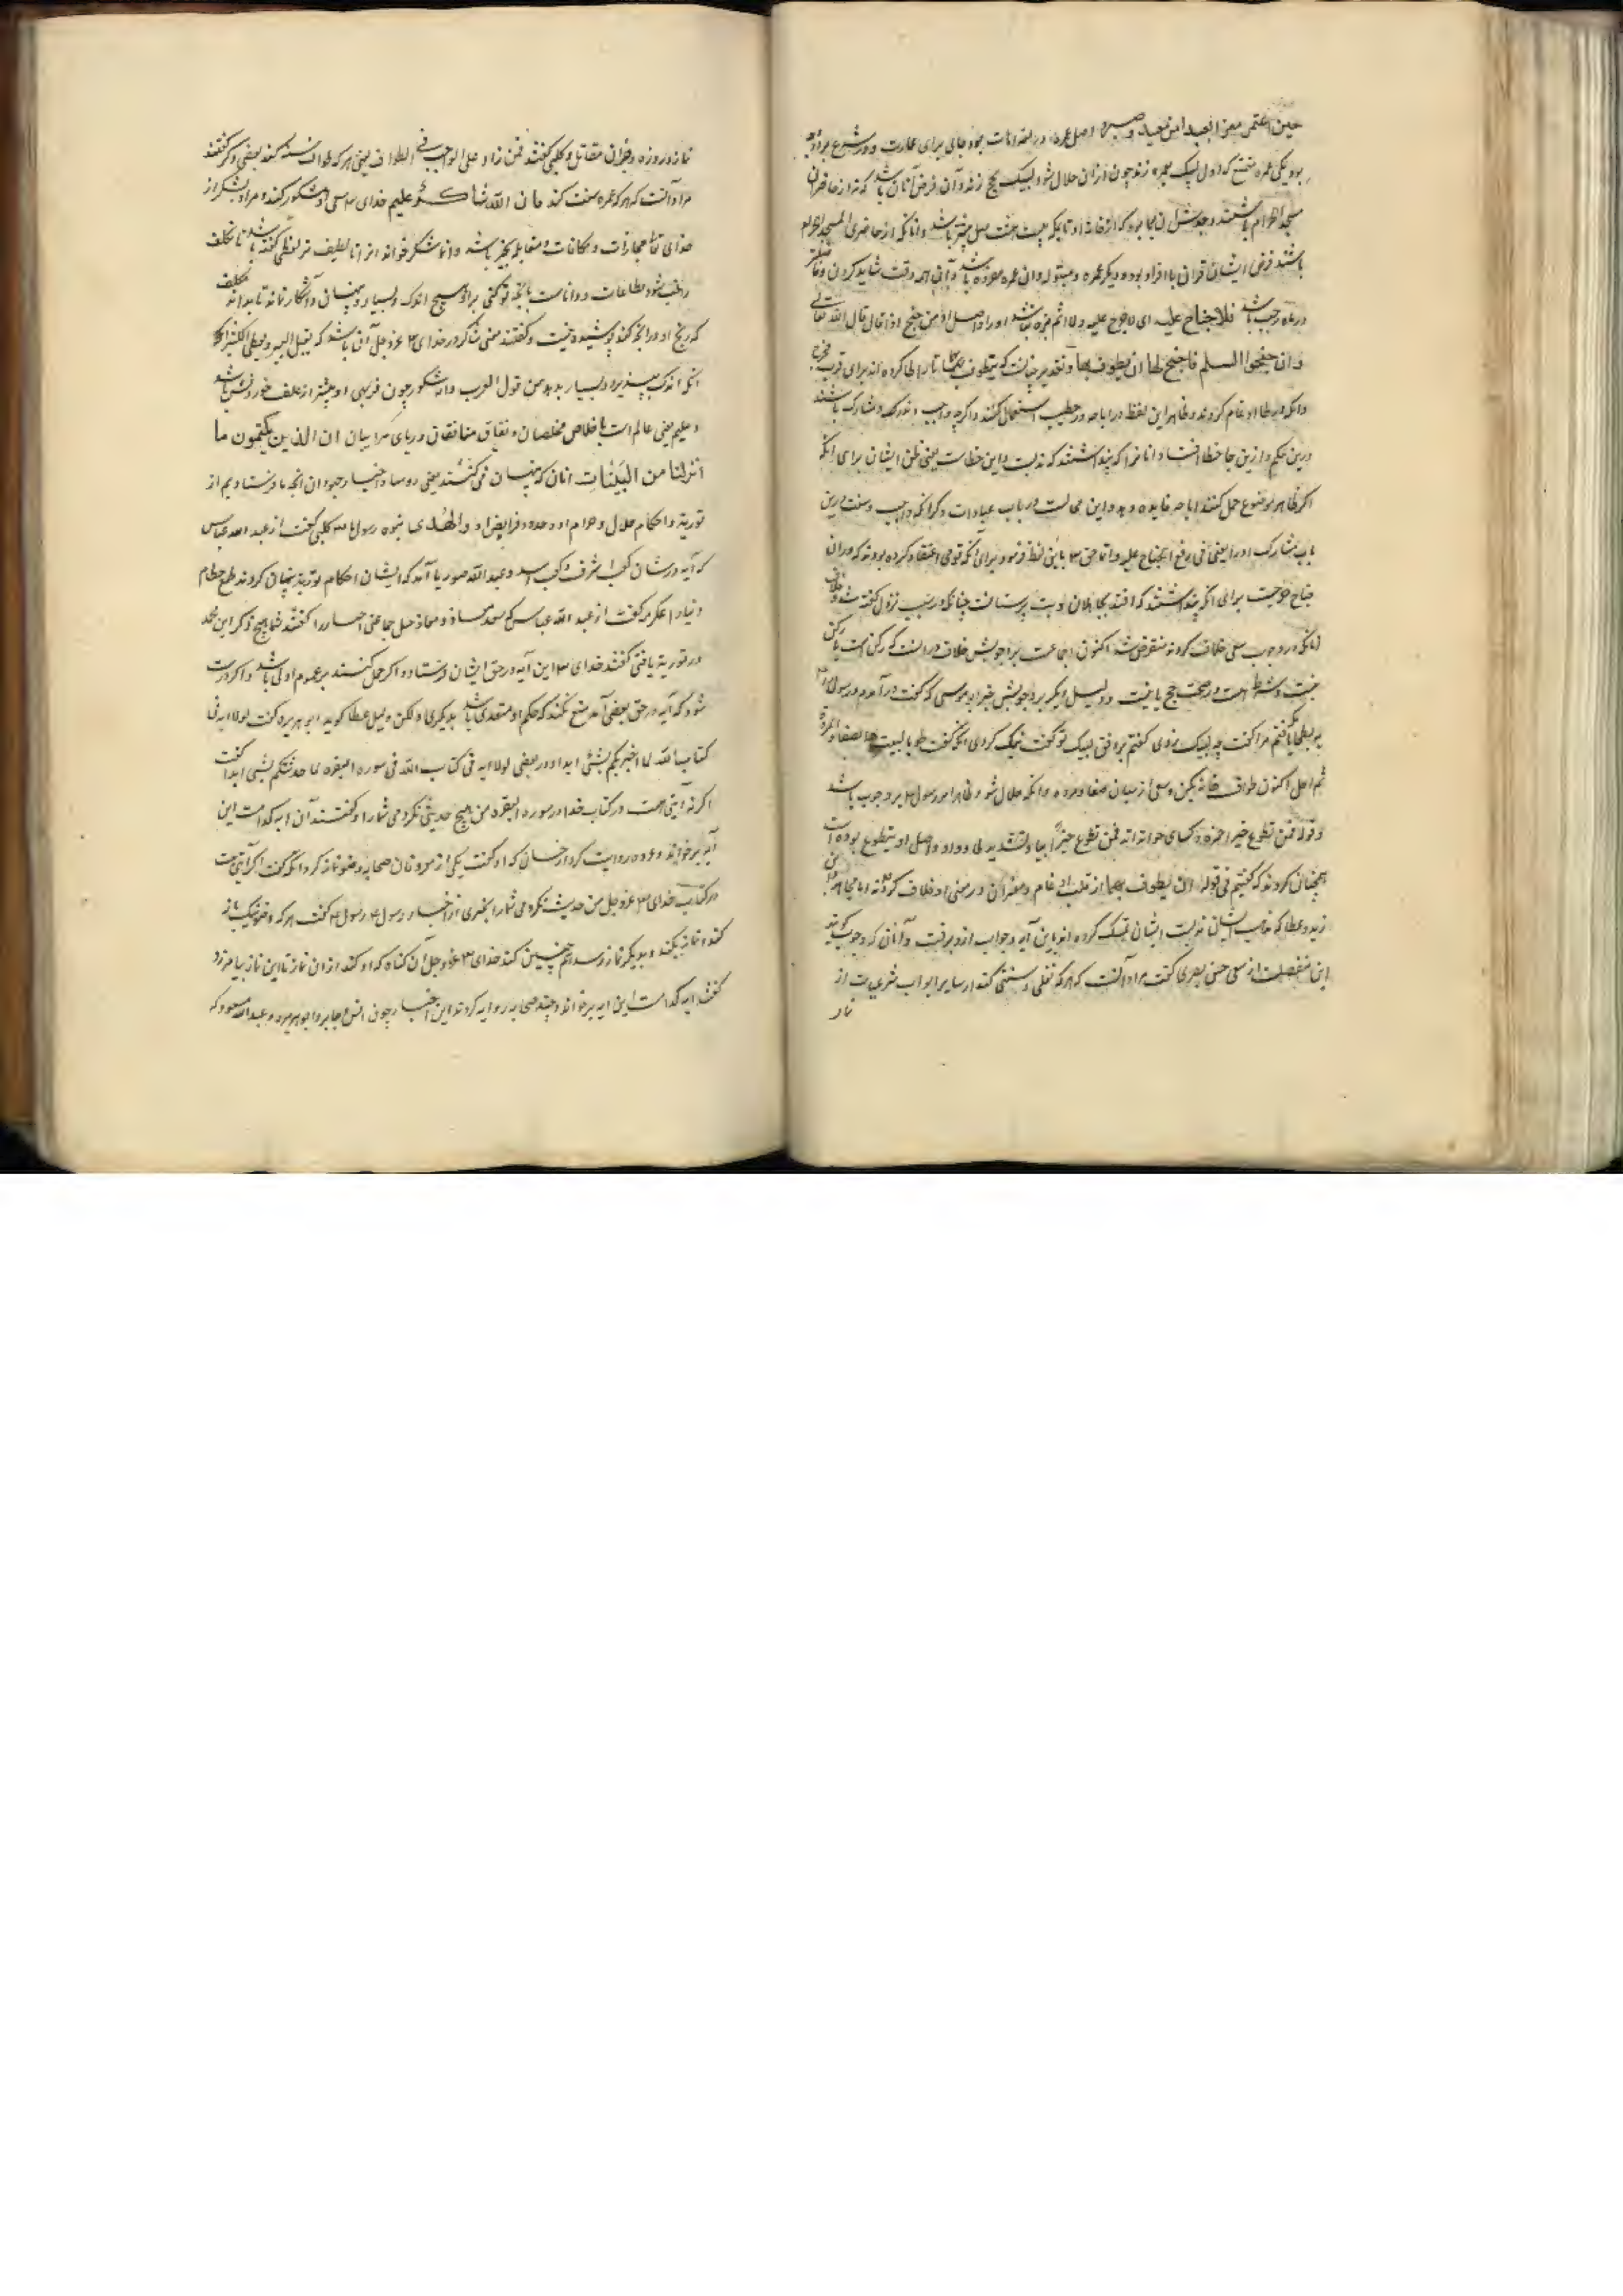 حین اعتمر مغزا بعیدا من بعید و صبر اصل عمره در لغت
بود یکی عمره تمتع که اول لبیک بعمره زند چون از آن حلال شود لبیک بحج زند و آن فرض آنان باشد که نه از حاضران
مسجد الحرام باشند و انانکه از حاضری المسجد الحرام
باشند فرض ایشان قران یا افراد بود و دیگر عمره و آن عمره مفرده باشد و آن همه وقت شاید کردن
در ماه رجب باشد فلا جناح علیه ای لا حرج علیه ولا اثم و اصل او من جنح اذا مال قال الله تعالی
وان جنحوا للسلم فاجنح لها ان یطوف بهما و تقدیر چنانست که یتطوف تا را طا کرده اند برای قرب مخرج
وانگه در طا ادغام کردند و ظاهر این لفظ در اباحه استعمال کنند و اگرچه واجب و ندب مشارک باشند
درین حکم و ازین جا خطا افتاد انانرا که پنداشتند که ندبست و این خطاست یعنی ظن ایشان برای آنکه
اگر ظاهر بر موضوع حمل کنند اباحه فایده دهد و این محالست در باب عبادات دگر آنکه واجب و سنت درین
باب مشارک اند یعنی فی رفع الجناح علیه و انما حق تعالی باین لفظ فرمود برای آنکه قومی اعتقاد کرده بودند که در آن
جناح و حرجست برای آنکه پنداشتند که اقتدا بجاهلان و بت پرستانست چنانکه در سبب نزول گفته شد و خلاف
آنانکه در وجوب سعی خلاف کردند منقرض شد اکنون اجماعست بر وجوبش خلاف در آنست که رکن است یا رکن
نیست و شرط است در صحت حج یا نیست و دلیل دیگر بر وجوبش خبر ابو موسی که گفت در آمدم و رسول
به بطحا یافتم مرا گفت چه لبیک زدی گفتم بر وفق لبیک تو گفت نیک کردی آنگه گفت طف بالبیت و بالصفا والمروه
ثم احل اکنون طواف خانه بکن و سعی از میان صفا و مروه و آنگه حلال شو و ظاهر امر رسول بر وجوب باشد
و قوله فمن تطوع خیرا حمزه و کسای خوانده اند فمن تطوع خیرا بیا و تشدید طا و واو و اصل او یتطوع بوده است
همچنان کردند که گفتیم فی قوله ان یطوف بهما از قلب و ادغام و مفسران در معنی او خلاف کردند اما مجاهد
زید و عطا که مذهب ایشان ندبست ایشان تمسک کرده اند باین آیه و جواب از و برفت و آنان که وجوب گویند
این منفصلست از سعی حسن بصری گفت مراد آنست که هر که نفلی و سنتی کند از سایر ابواب شرعیات از
نماز
نماز و روزه و جز آن مقاتل و کلبی گفتند فمن زاد علی الواجب فی الطواف یعنی هر که طواف سنت کند بعضی دگر گفتند
مراد آنست که هر که عمره سنت کند فان الله شاکر علیم خدای تعالی سعی او مشکور کند و مراد بشکر از
خدای تعالی مجازات و مکافات و مقابله بخیر باشد و انما شکر خواند از آنجا لطیف تر لفظی گفته باشد تا مکلف
راغب شود بطاعات و داناست بآنچه تو کنی بر او هیچ اندک و بسیار و پنهان و آشکارا نماند تا بداند مکلف
که رنج او در آنچه کند پوشیده نیست و گفتند معنی شاکر در خدای عز و جل آن باشد که یقبل الیسیر و یعطی الکثیر
آنکه اندک بپذیرد و بسیار بدهد من قول العرب دابة شکور چون فربهی او بیشتر از علف خوردنش باشد
و علیم یعنی عالم است باخلاص مخلصان و نفاق منافقان و ریای مراییان ان الذین یکتمون ما
انزلنا من البینات آنان که پنهان می کنند یعنی روسا و احبار جهودان آنچه ما فرستادیم از
توریة و احکام حلال و حرام او و حدود و فرایض او والهدی نبوه رسول ما کلبی گفت از عبد الله عباس
که آیه در شان کعب اشرف و کعب اسد و عبد الله صوریا آمد که ایشان احکام توریة پنهان کردند طمع حطام
دنیا را عکرمه گفت از عبد الله عباس که سعد معاذ و معاذ جبل جماعتی احبار را گفتند شما هیچ ذکر این محمد
در توریة یافتی گفتند خدای تعالی این آیه در حق ایشان فرستاد و اگر حمل کنند بر عموم اولی باشد و اگر درست
شود که آیه در حق بعضی آمد منع نکند که حکم او متعدی باشد بدیگری و لکن دلیل عطا گوید ابو هریره گفت لولا ایه فی
کتاب الله لما اخبرتکم بشئ ابدا و در بعضی لولا ایه فی کتاب الله فی سوره البقره لما حدثتکم بشئ ابدا گفت
اگر نه آیتی است در کتاب خدا در سوره البقره من هیچ حدیثی نکردمی شما را گفتند آن ایه کدامست این
آیه برخواند و عروه روایت کرد از حسان که او گفت یکی از موذنان صحابه وضو نماز کرد آنگه گفت اگر آیتی نیست
در کتاب خدای عز و جل من حدیث نکردمی شما را بخبری از اخبار رسول رسول گفت هر که وضو نیک باز
کند و نماز بکند و بدیگر نماز رسد همچنین کند خدای عز و جل آن گناه که او کند از آن نماز تا این نماز بیامرزد
گفتند آیه کدامست این ایه برخواند و چند صحابه روایه کردند این اخبار چون انس و جابر و ابو هریره و عبد الله مسعود که